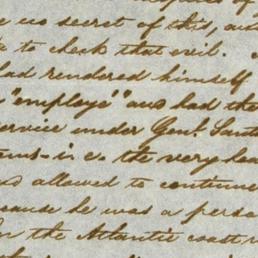 e no secret of this, and
to check that evil.
had rendered himself
"employe" and had the
service under Genl. Santa
ams - i e. the very hea
allowed to continue
cause he was a perso
on the Atlantic coast